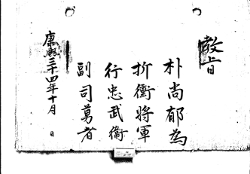 敎旨
朴尚郁為
折衝將軍
行忠武衛
副司勇者
康熙三十四年十月　日